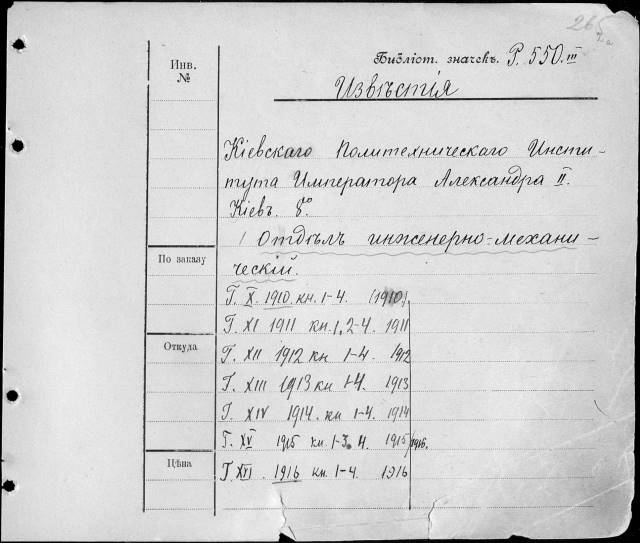 265
Инв.
№
Бібліот. значекъ. P. 550.III
Извѣстія
Кіевскаго Политехническаго Инсти-
тута Императора Александра II.
Кіевъ. 8°.
Отдѣлъ инженерно-механи-
ческій.
По заказу
Г. X. 1910. кн. 1-4. (1910)
Г. XI 1911 кн. 1, 2-4. 1911
Откуда
Г. XII 1912 кн 1-4. 1912
Г. XIII 1913 кн 1-4. 1913
Г. XIV 1914. кн 1-4. 1914
Г. XV 1915 кн. 1-3. 4. 1915/1916.
Цѣна
Г. XVI. 1916 кн. 1-4. 1916